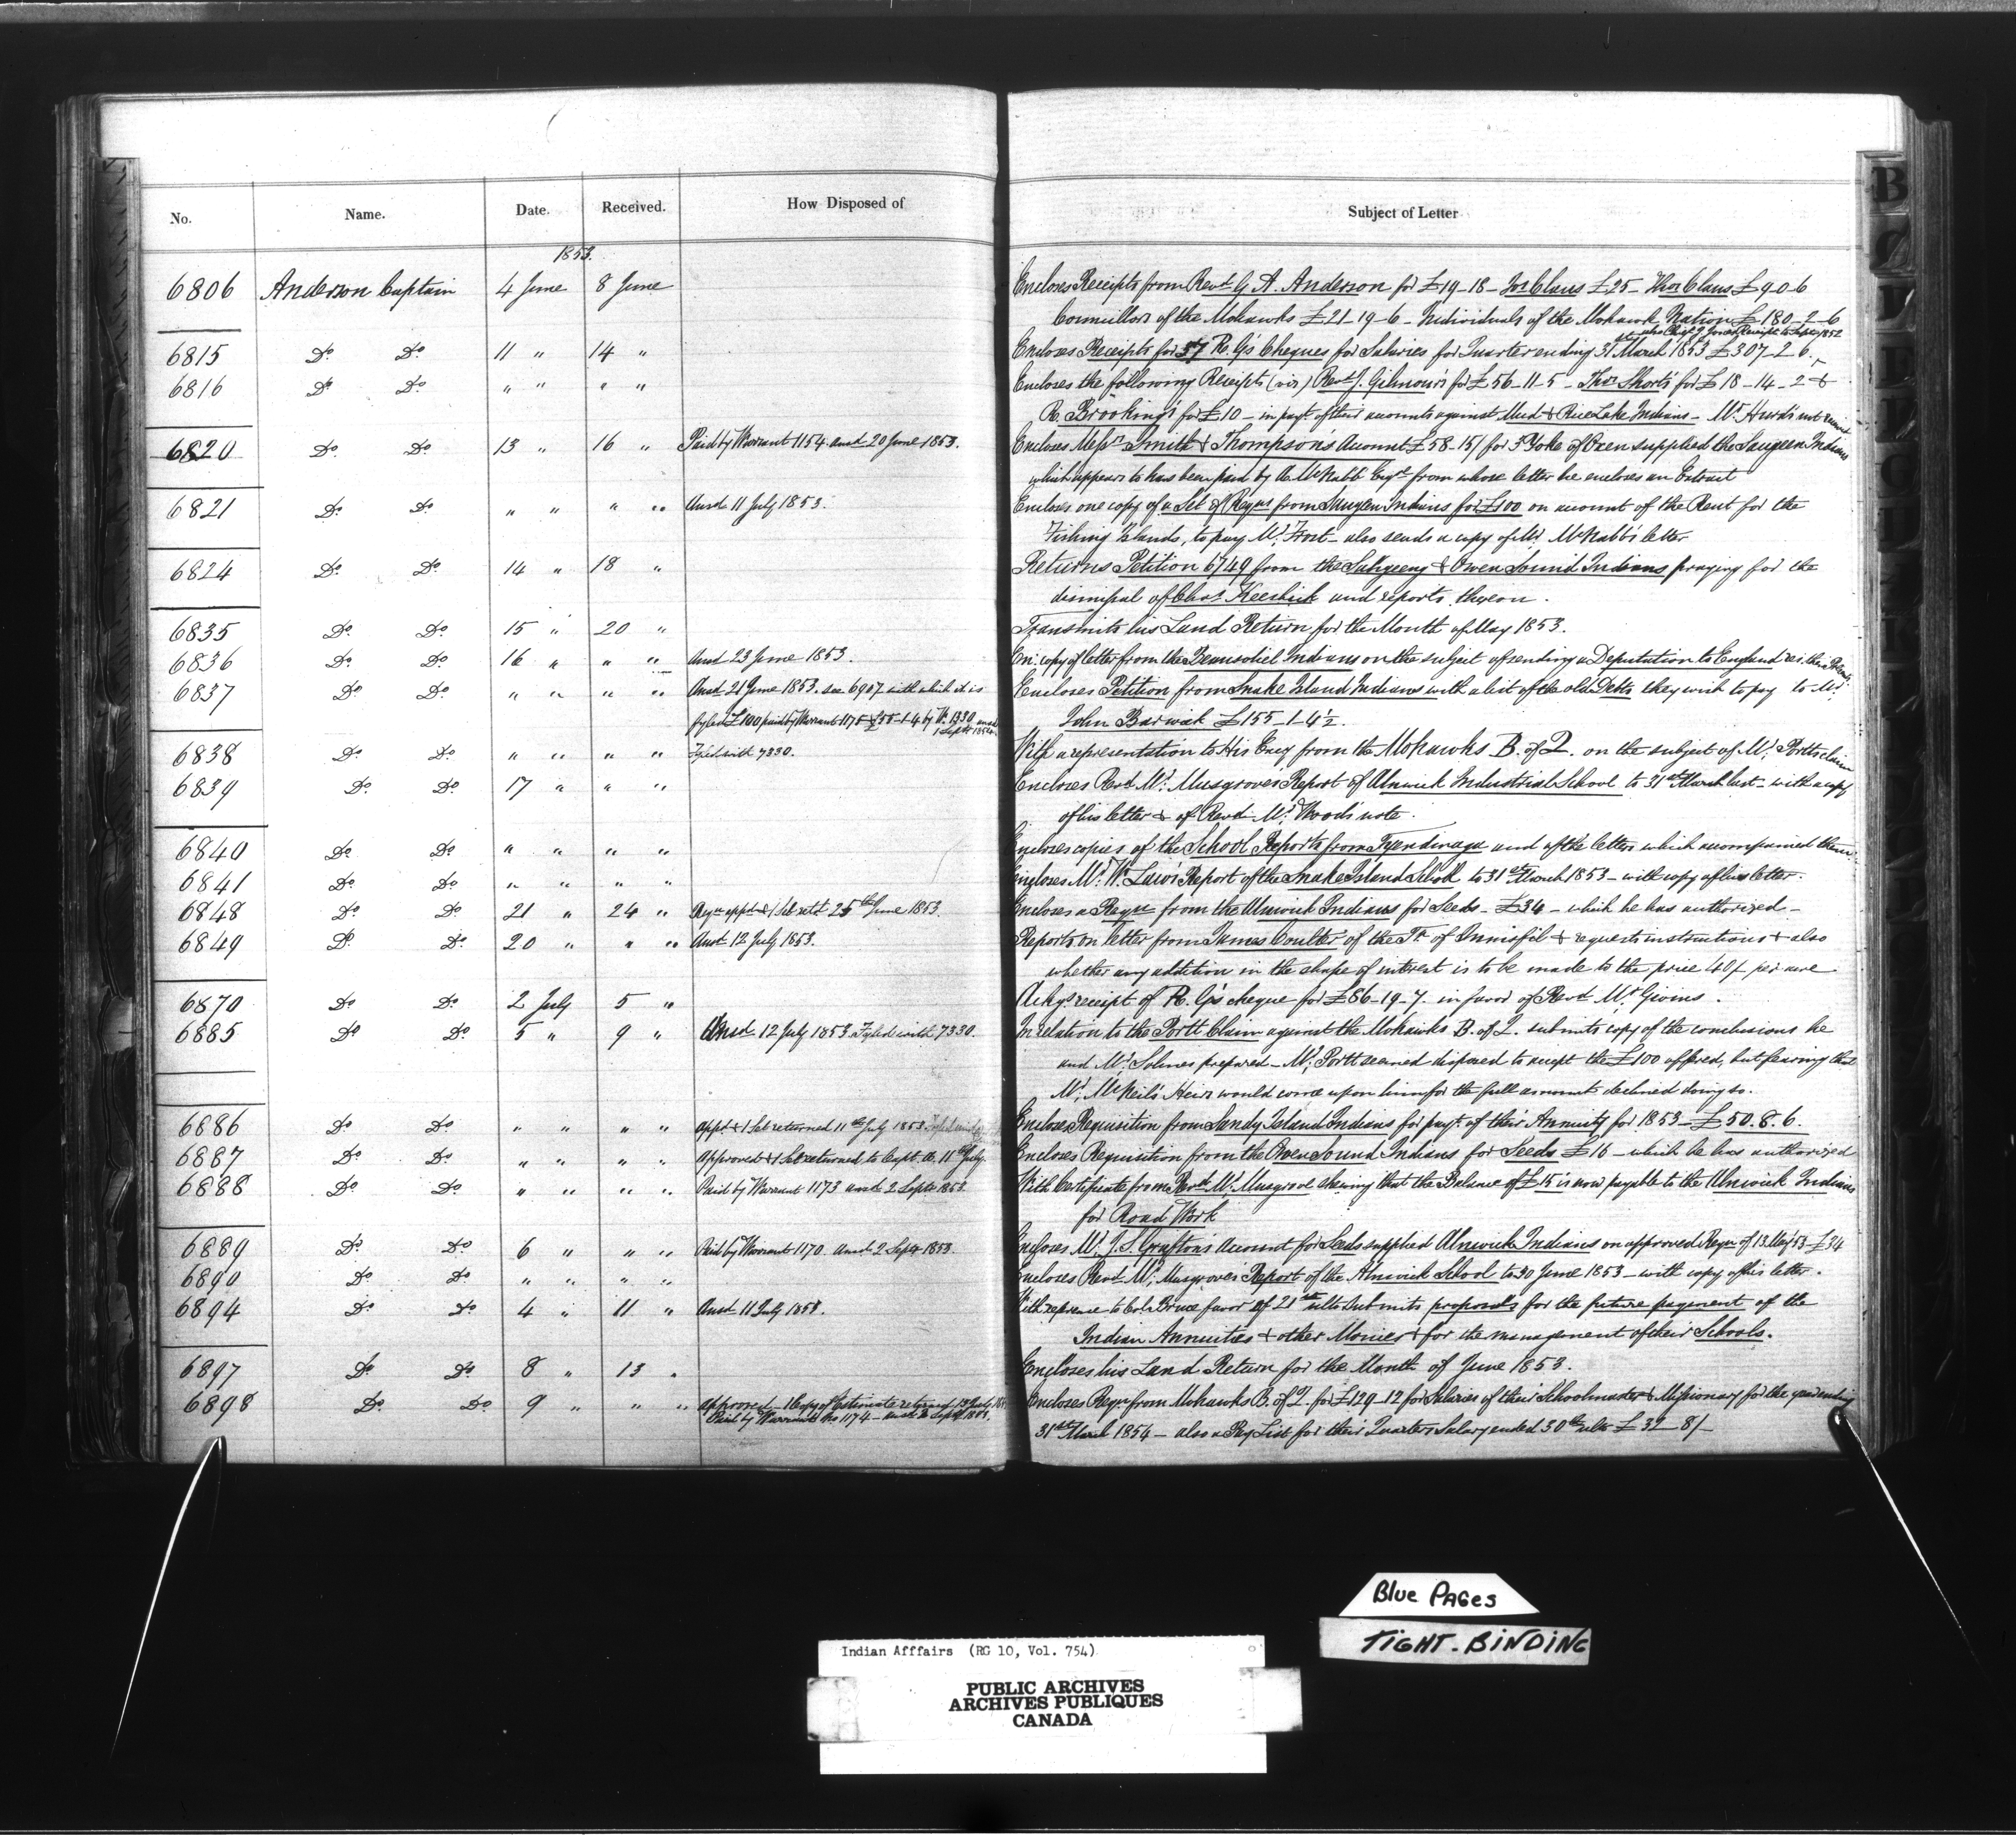 No. Name. Date. Received. How Disposed of Subject of Letter
1853.
6806 Anderson Captain 4 June 8 June Encloses Receipts from Revd G. A. Anderson for £19-18- Jos Claus £25- Thos Claus £9-0-6
Councillors of the Mohawks £21-19-6- Individuals of the Mohawk Nation £180-2-6
also Chief J. Jones Receipt to Septr 1852
6815 Do Do 11 " 14 " Encloses Receipts for 37 R. G's Cheques for Salaries for Quarter ending 31 March 1853 £307-2-6
6816 Do Do " " " " Encloses the following Receipts (viz) Revd J. Gilmour's for £56-11-5- Thos Short's for £18-14-2 &
R. Brooking's for £10- in payt of their accounts against Mud & Rice Lake Indians- Mr
6820 Do Do 13 " 16 " Paid by Warrant 1154 and 20 June 1853. Encloses Messrs Smith & Thompson's Account £58-15/ for 3 Yoke of Oxen supplied the Saugeen Indians
which appears to have been paid by A McNabb Esqre from whose letter he encloses an Extract
6821 Do Do " " " " Ansd 11 July 1853. Encloses one copy of a Set of Reqns from Saugeen Indians for £100 on account of the Rent for the
Fishing Islands, to pay Mr Frost- also sends a copy of Mr McNabb's letter
6824 Do Do 14 " 18 " Returns Petition 6749 from the Sahgeeng & Owen Sound Indians praying for the
dismissal of Chas Keeshick and reports thereon.
6835 Do Do 15 " 20 " Transmits his Land Return for the Month of May 1853.
6836 Do Do 16 " " " Ansd 23 June 1853. En: copy of letter from the Beausoliel Indians on the subject of sending a Deputation to England
6837 Do Do " " " " Ansd 21 June 1853. see 6907 with which it is Encloses Petition from Snake Island Indians with a list of the old Debts they wish to pay to Mr
fyled £100 paid by Warrant 1175 £55-1-4 by Wt 1330 ansd John Barwick £155-1-4½.
1 Septr 1854.
6838 Do Do " " " " Fyled with 7330. With a representation to His Excy from the Mohawks B. of Q. on the subject of Mr Portts claim
6839 Do Do 17 " " " Encloses Revd Mr Musgrove's Report of Alnwick Industrial School to 31st March last- with a copy
of his letter & of Revd Mr Wood's note.
6840 Do Do " " " " Encloses copies of the School Reports from Tyendinaga and of the letters which accompanied them.
6841 Do Do " " " " Encloses Mr Wm Law's Report of the Snake Island School to 31st March 1853- with copy of his letter.
6848 Do Do 21 " 24 " Reqn appd & 1 Set retd 25th June 1853. Encloses a Reqn from the Alnwick Indians for Seeds- £34- which he has authorized-
6849 Do Do 20 " " " Ansd 12 July 1853. Reports on letter from James Coulter of the Tp of Innisfil & requests instructions & also
whether any addition in the shape of interest is to be made to the price 40/ per acre
6870 Do Do 2 July 5 " Ackgs receipt of R. G's cheque for £86-19-7. in favor of Revd Mr Givins.
6885 Do Do 5 " 9 " Ansd 12 July 1853. Fyled with 7330. In relation to the Portt Claim against the Mohawks B. of Q. submits copy of the conclusions he
and Mr Solmes prepared- Mr Portt seemed disposed to accept the £100 offered, but fearing that
Mr McNeil's Heirs would come upon him for the full amount declined doing so.
6886 Do Do " " " " Appd & 1 Set returned 11th July 1853. Encloses Requisition from Sandy Island Indians for payt of their Annuity for 1853- £50.8.6.
6887 Do Do " " " " Approved & 1 Set returned to Capt. A. 11th July. Encloses Requisition from the Owen Sound Indians for Seeds £16- which he has authorized
6888 Do Do " " " " Paid by Warrant 1173 ansd 2 Septr 1853. With Certificate from Revd Mr Musgrove shewing that the Balance of £15 is now payable to the Alnwick Indians
for Road Work
6889 Do Do 6 " " " Paid by Warrant 1170. ansd 2 Septr 1853. Encloses Mr J. S. Grafton's Account for Seeds supplied Alnwick Indians on approved Reqn of 13 May '53 £34
6890 Do Do " " " " Encloses Revd Mr Musgrove's Report of the Alnwick School to 30 June 1853- with copy of his letter.
6894 Do Do 4 " 11 " Ansd 11 July 1853. With reference to Col. Bruce favor of 21st ulto submits proposals for the future payment of the
Indian Annuities & other Monies & for the management of their Schools.
6897 Do Do 8 " 13 " Encloses his Land Return for the Month of June 1853.
6898 Do Do 9 " " " Approved- 1 Copy of Estimate returned 13 July Encloses Reqn from Mohawks B. of Q. for £129-12 for Salaries of their Schoolmaster & Missionary for the year ending
Paid by Warrant No 1174- ansd 2 Septr 1853. 31st March 1854- also a Pay List for their Quarters Salary ended 30th ulto £32-8/-
B
Blue Pages
TIGHT-BINDING
Indian Afffairs (RG 10, Vol. 754)
PUBLIC ARCHIVES
ARCHIVES PUBLIQUES
CANADA